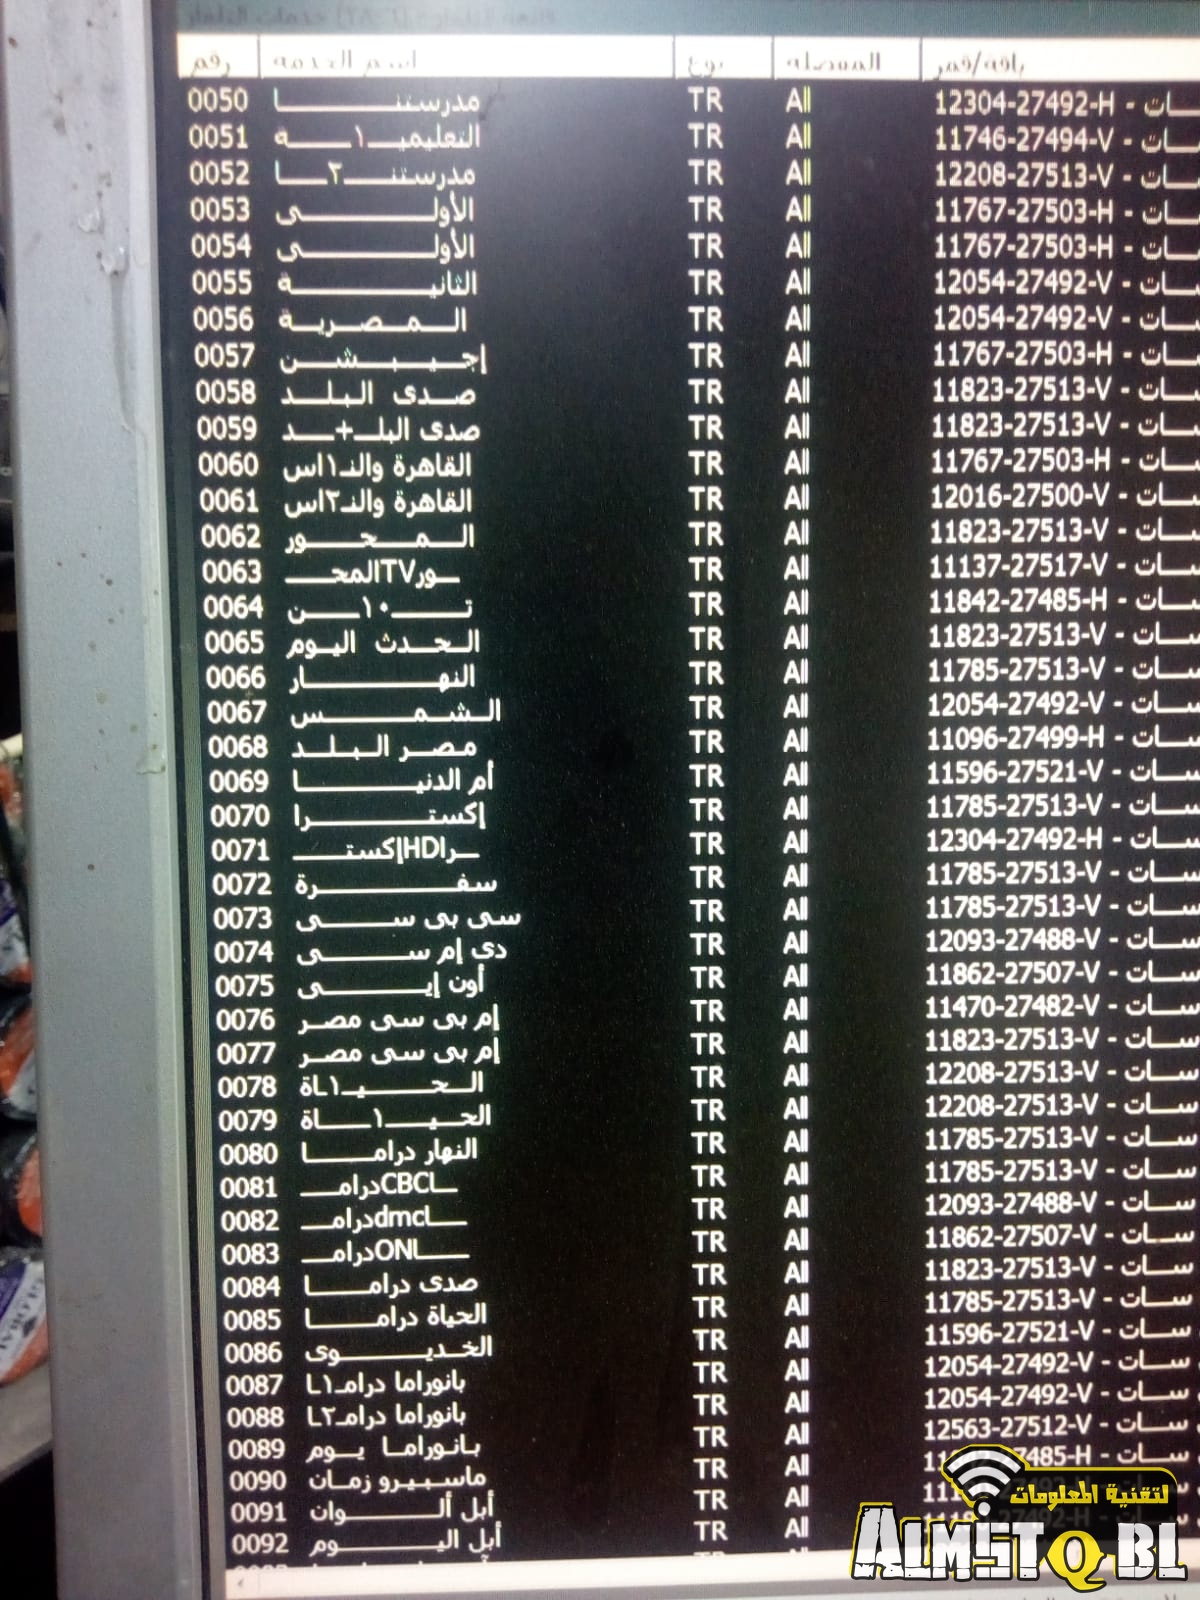 رقم اسم الخدمة نوع المفضلة باقة/قمر
0050 مدرستنـــــا TR All 12304-27492-H - ـسـات
0051 التعليميـــ١ـــة TR All 11746-27494-V - ـسـات
0052 مدرستنـــ٢ـــا TR All 12208-27513-V - ـسـات
0053 الأولـــــى TR All 11767-27503-H - ـسـات
0054 الأولـــــى TR All 11767-27503-H - ـسـات
0055 الثانيـــــة TR All 12054-27492-V - ـسـات
0056 الـمـصـريـــة TR All 12054-27492-V - ـسـات
0057 إجـيـبـشـن TR All 11767-27503-H - ـسـات
0058 صـدى الـبـلـد TR All 11823-27513-V - ـسـات
0059 صدى البلــ+ــد TR All 11823-27513-V - ـسـات
0060 القاهرة والنـ١اس TR All 11767-27503-H - ـسـات
0061 القاهرة والنـ٢اس TR All 12016-27500-V - ـسـات
0062 الـمـحـور TR All 11823-27513-V - ـسـات
0063 المحــTVــور TR All 11137-27517-V - ـسـات
0064 تــ١٠ــن TR All 11842-27485-H - ـسـات
0065 الـحـدث اليـوم TR All 11823-27513-V - ـسـات
0066 النهـــــار TR All 11785-27513-V - ـسـات
0067 الـشـمـــس TR All 12054-27492-V - ـسـات
0068 مـصـر الـبـلـد TR All 11096-27499-H - ـسـات
0069 أم الدنيـــــا TR All 11596-27521-V - ـسـات
0070 إكستـــــرا TR All 11785-27513-V - ـسـات
0071 إكستــHDــرا TR All 12304-27492-H - ـسـات
0072 سفـــــرة TR All 11785-27513-V - ـسـات
0073 سى بى ســـى TR All 11785-27513-V - ـسـات
0074 دى إم ســـى TR All 12093-27488-V - ـسـات
0075 أون إيـــــى TR All 11862-27507-V - ـسـات
0076 إم بى سى مصـر TR All 11470-27482-V - ـسـات
0077 إم بى سى مصـر TR All 11823-27513-V - ـسـات
0078 الـحـــيــ١ـاة TR All 12208-27513-V - ـسـات
0079 الحيــ١ــاة TR All 12208-27513-V - ـسـات
0080 النهار درامــــا TR All 11785-27513-V - ـسـات
0081 درامــCBCــا TR All 11785-27513-V - ـسـات
0082 درامــdmcــا TR All 12093-27488-V - ـسـات
0083 درامــONــا TR All 11862-27507-V - ـسـات
0084 صدى درامــــا TR All 11823-27513-V - ـسـات
0085 الحياة درامــــا TR All 11785-27513-V - ـسـات
0086 الخديـــــوى TR All 11596-27521-V - ـسـات
0087 بانوراما درامـ١ـا TR All 12054-27492-V - ـسـات
0088 بانوراما درامـ٢ـا TR All 12054-27492-V - ـسـات
0089 بـانـورامـا يـوم TR All 12563-27512-V - ـسـات
0090 ماسبيرو زمـان TR All 27485-H - ـسـات
0091 أبل ألـــــوان TR All
0092 أبل اليـــــوم TR All
لتقنية المعلومات
ALMSTQBL